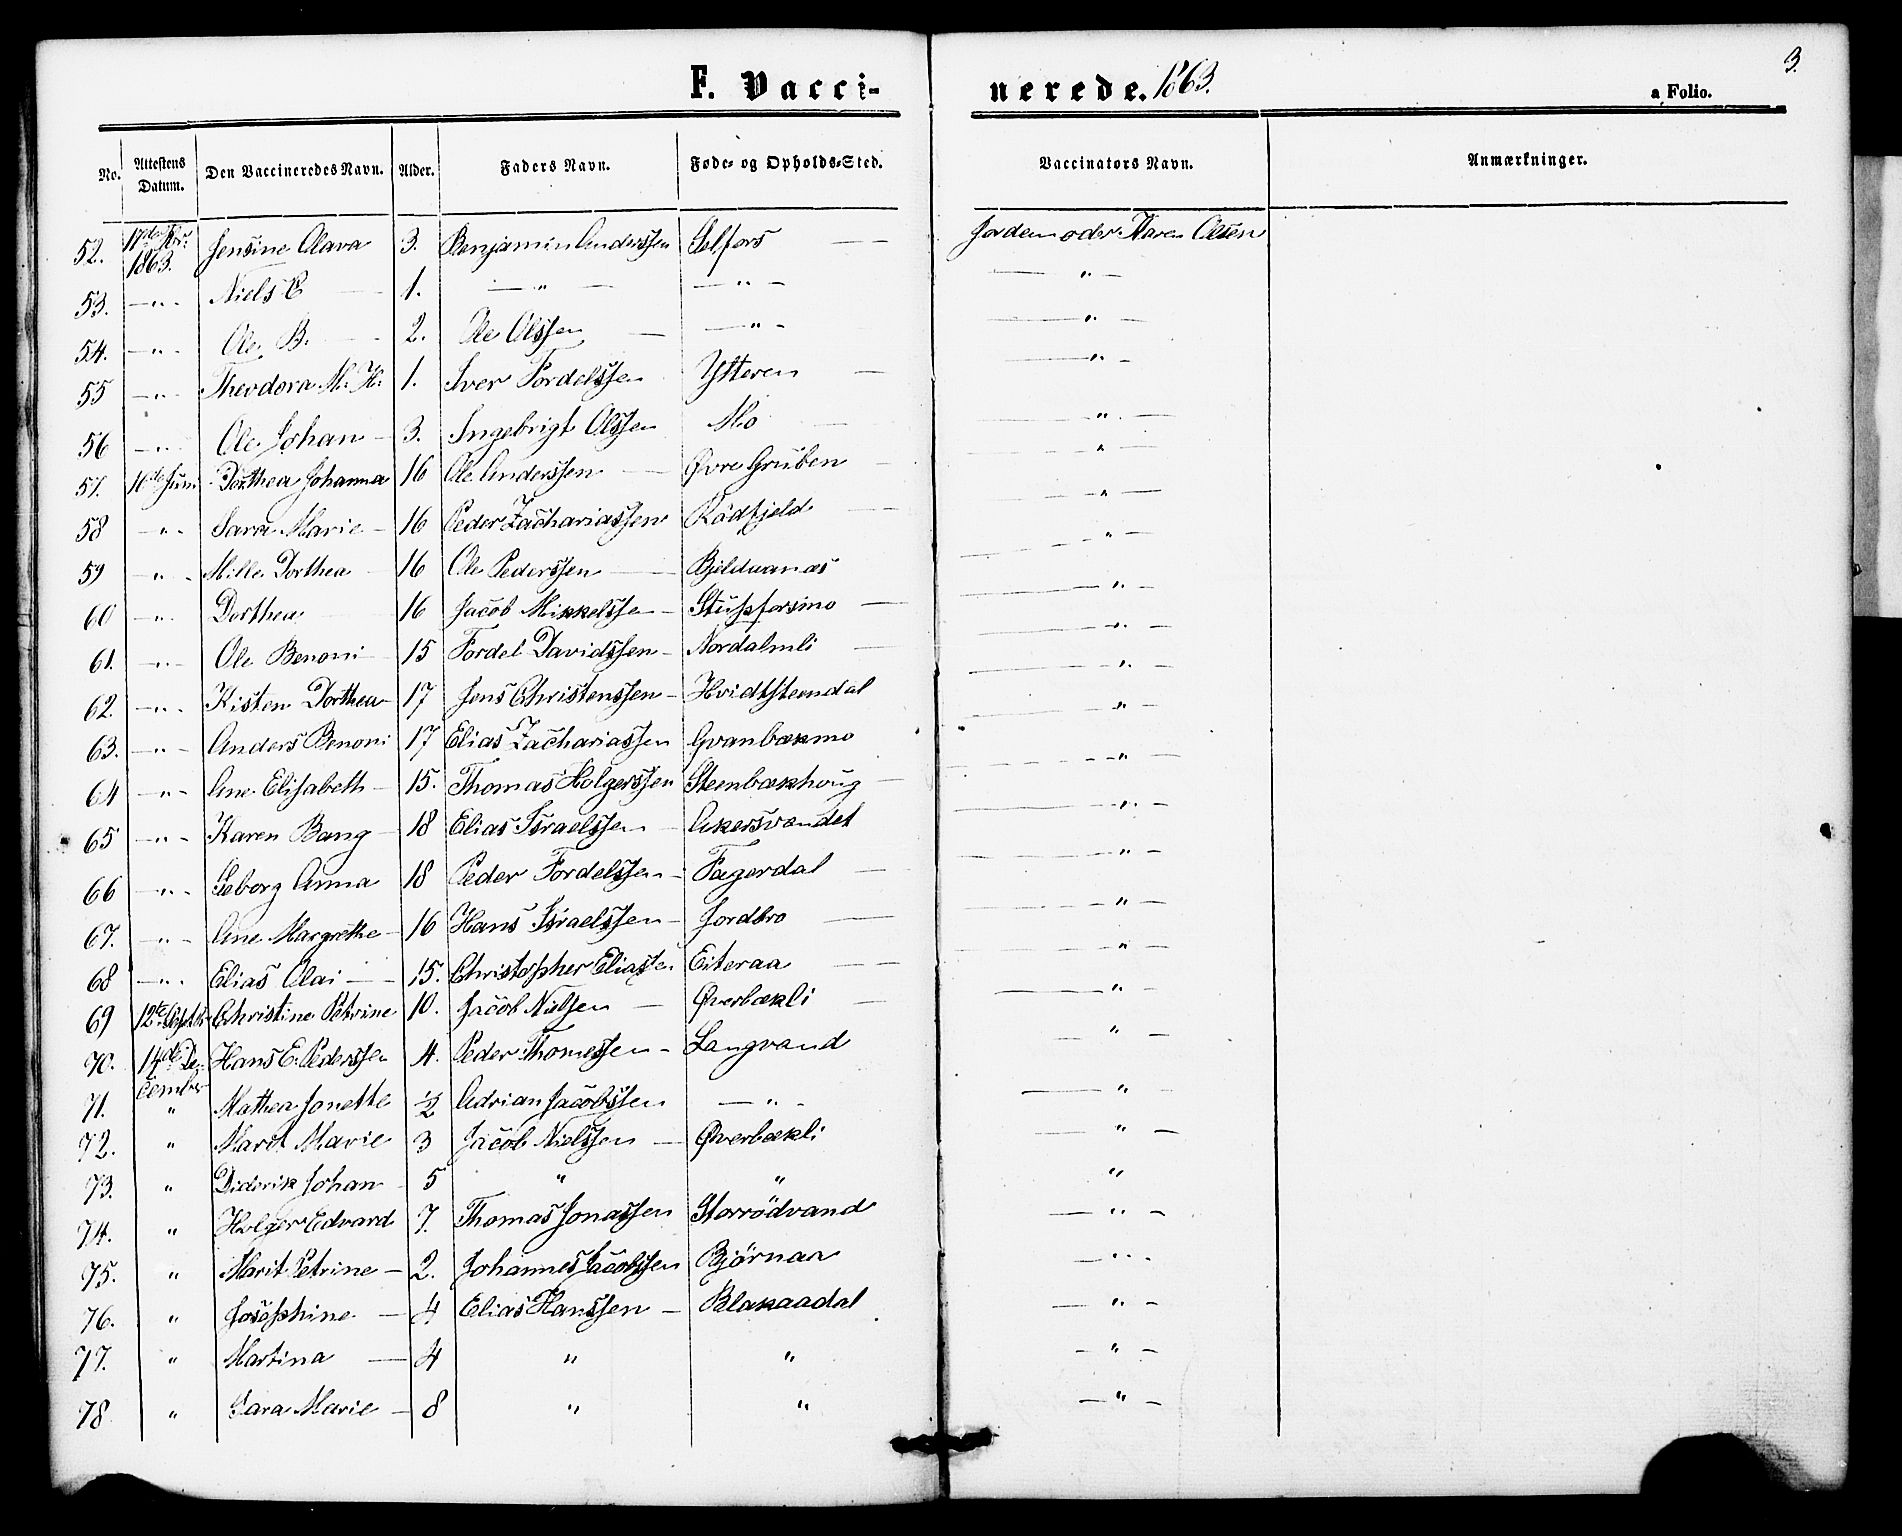 F. Vaccinerede. 1863. 3.
a Folio.
No. Attestens Datum. Den Vaccineredes Navn. Alder. Faders Navn. Føde- og Opholds-Sted. Vaccinators Navn. Anmærkninger.
52. 1863. Jensine Olava 3. Benjamin Anderssen Selfors — Jordemoder Karen Olsen
53. —"- Niels E — 1. —"— —"- —"-
54. —"- Ole B. - 2. Ole Olssen — —"- —"-
55 —"- Theodora M. H. 1. Iver Tordelssen Ytteren — —"-
56 —"- Ole Johan - 3. Ingebrigt Olssen Mo — —"—
57. 16de Juni Dorthea Johanna 16 Ole Anderssen — Øvre Gruben —"—
58 —"- Sara Marie - 16 Peder Zachariassen Rödfjeld — —"—
59 —"- Mille Dorthea 16 Ole Pederssen — —"—
60 —"- Dorthea 16 Jacob Mikkelssen - Stupforsmo — —"—
61. —"- Ole Benoni - 15 Tordel Davidssen - Nordalmli — —"—
62. —"- Kisten Dorthea - 17 Jens Christenssen - Hvidtsteendal —"—
63. —"- Anders Benoni 17 Elias Zachariassen Gvanbækmo —"—
64 —"- Ane Elisabeth - 15. Thomas Holgerssen Steenbækhoug —"—
65 —"- Karen Bang - 18 Elias Israelssen - Akersvandet —"—
66 —"- Seborg Anna 18 Peder Tordelssen - Fagerdal — —"—
67. —"- Ane Margrethe - 16 Hans Israelssen - Jordbro — —"—
68 —"- Elias Olai - 15. Christopher Eliassen Eiteraa — —"—
69 12te Septbr Christine Petrine 10. Jacob Nilsen — Øverbækli — —"—
70. 14de December Hans E. Pederssen 4. Peder Thomessen - Langvand —"—
71. " Mathea Jonette ½ Adrian Jacobssen —"- —"—
72. " Marit Marie 3 Jacob Nielssen — Øverbækli —"—
73. " Diderik Johan 5 " " "
74. " Holger Edvard 7. Thomas Jonassen Storrödvand —"-
75. " Marit Petrine - 2. Johannes Jacobssen Bjørnaa —"-
76. " Josephine - 4 Elias Hanssen - Blakaadal —"-
77. " Martina — 4 " " -"-
78 " Sara Marie - 8 " " —"-